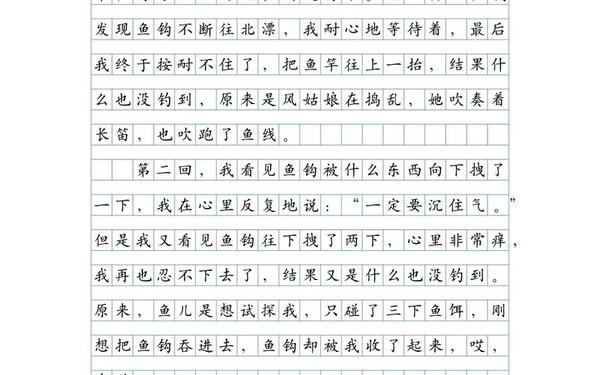 发现鱼钩不断往北漂，我耐心地等待着，最后
我终于按耐不住了，把鱼竿往上一抬，结果什
么也没钓到，原来是风姑娘在捣乱，她吹奏着
长笛，也吹跑了鱼线。
第二回，我看见鱼钩被什么东西向下拽了
一下，我在心里反复地说：“一定要沉住气。”
但是我又看见鱼钩往下拽了两下，心里非常痒，
我再也忍不下去了，结果又是什么也没钓到。
原来，鱼儿是想试探我，只碰了三下鱼饵，刚
想把鱼钩吞进去，鱼钩却被我收了起来，哎，